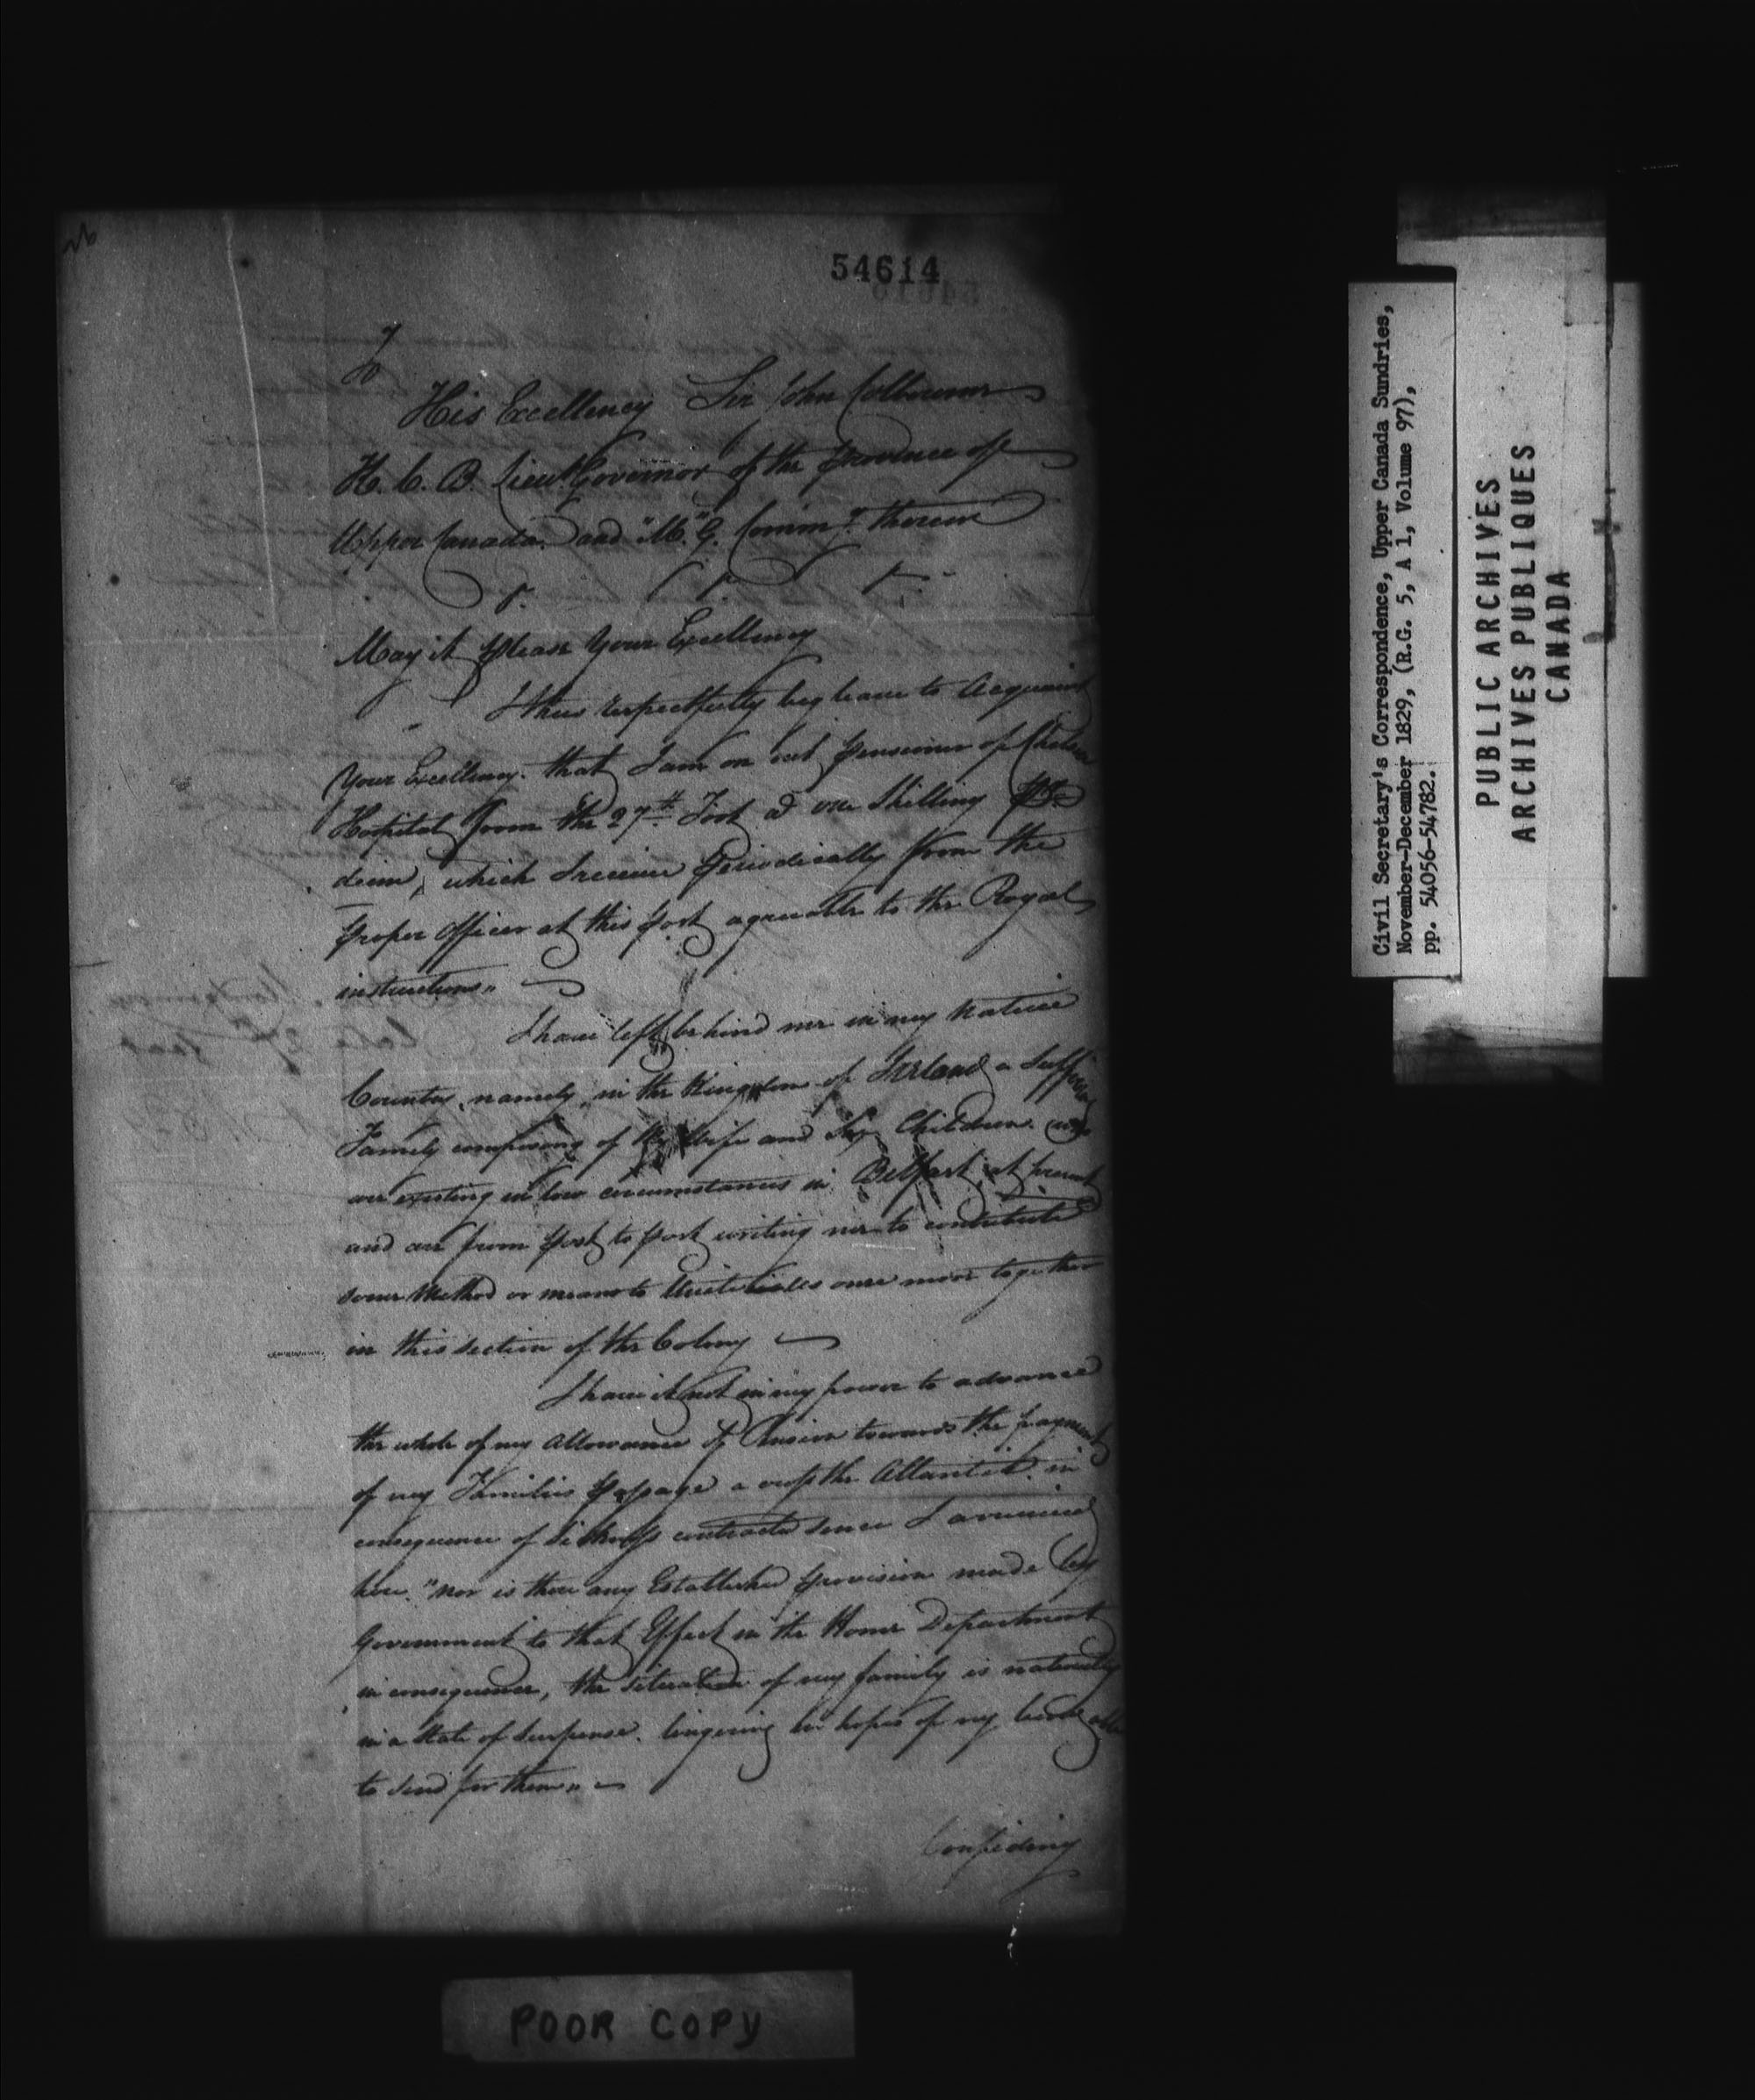 54614
To
His Excellency Sir John Colborne
K. C. B. Lieut. Governor of the Province of
Upper Canada and "M." G. Comm.g therein
&c. &c. &c.
May it please Your Excellency
I thus respectfully beg leave to Acquaint
Your Excellency. that I am an out pensioner of Chelsea
Hospital from the 27th Foot @ one Shilling Per
diem, which I receive periodically from the
proper Officer at this post agreeable to the Royal
instructions"
I have left behind me in my Native
Country, namely, in the Kingdom of Ireland a Suffering
Family composing of My Wife and Six Children who
are existing in low circumstances in Belfast, at present
and are from post to post writing me to contribute
some Method or means to Unite us once more together
in this section of the Colony
I have it not in my power to advance
the whole of my Allowance of Pension towards the payment
of my Families Passage a cross the Atlantic. in
consequence of Sickness contracted since I arrived
here. "nor is there any Established provision made by
Government to that Effect in the Home Department
in consequence, the situation of my family is naturally
in a State of Suspense. lingering in hopes of my being able
to send for them"
Confiding
POOR COPY
Civil Secretary's Correspondence, Upper Canada Sundries,
November-December 1829, (R.G. 5, A 1, Volume 97),
pp. 54056-54782.
PUBLIC ARCHIVES
ARCHIVES PUBLIQUES
CANADA